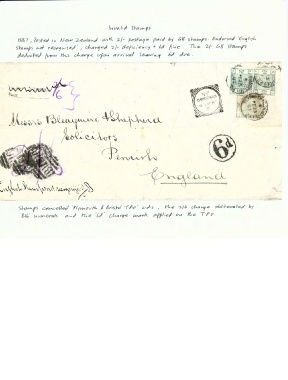 Invalid Stamps
1887, posted in New Zealand with 2/- postage paid by GB stamps. Endorsed English
Stamps not recognised, charged 2/- deficiency + 6d fine. The 2/- GB stamps
deducted from this charge upon arrival leaving 6d due.
2/6
Messrs Bleaymire & Shepherd
Solicitors
Penrith
England
6d
English Stamps not recognised
Stamps cancelled Plymouth & Bristol TPO cds, the 2/6 charge obliterated by
B16 numerals and the '6d' charge mark applied on the TPO.